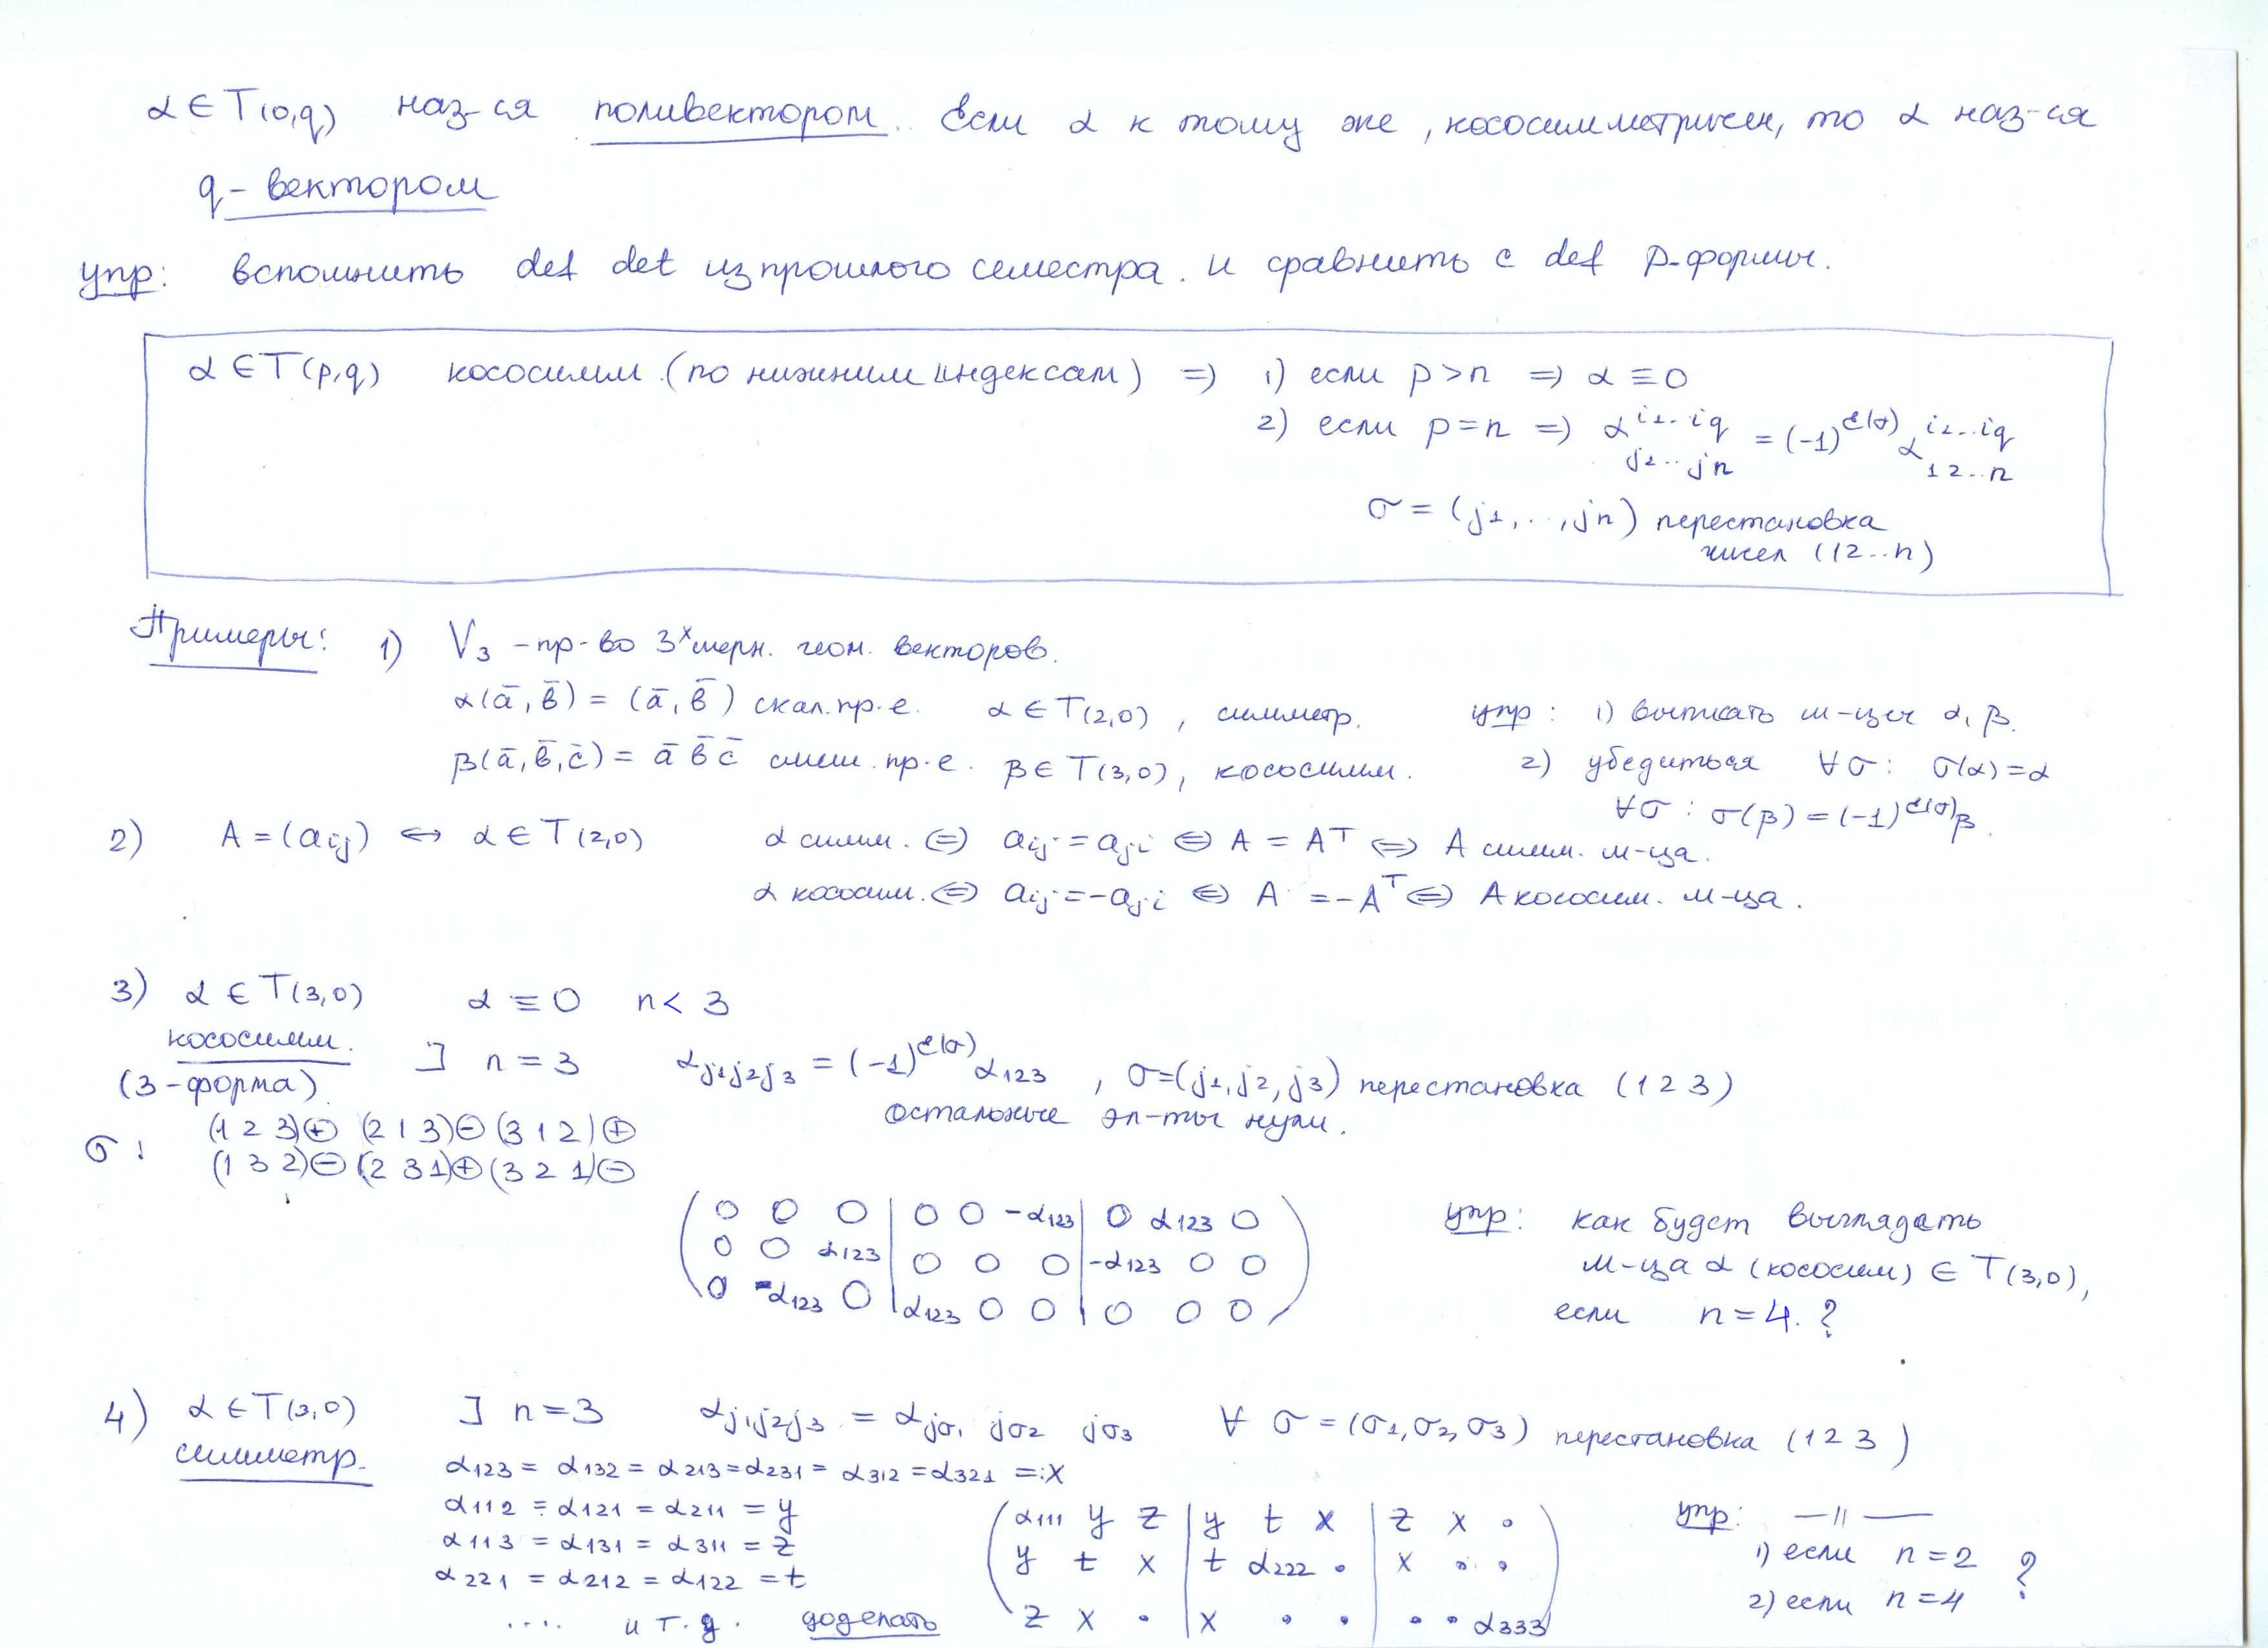 α ∈ T(0,q) наз-ся поливектором. Если α к тому же, кососимметричен, то α наз-ся
q-вектором
упр: вспомнить def det из прошлого семестра. и сравнить с def p-формы.
α ∈ T(p,q) кососимм. (по нижним индексам) ⇒ 1) если p>n ⇒ α ≡ 0
2) если p=n ⇒ α^{i1..iq}_{j1..jn} = (-1)^{ε(σ)} α^{i1..iq}_{12..n}
σ = (j1,..,jn) перестановка
чисел (12..n)
Примеры: 1) V3 - пр-во 3х мерн. геом. векторов.
α(ā,b̄) = (ā,b̄) скал.пр.е. α ∈ T(2,0), симметр. упр: 1) выписать м-цы α, β.
β(ā,b̄,c̄) = ā b̄ c̄ смеш. пр.е. β ∈ T(3,0), кососимм. 2) убедиться ∀σ: σ(α)=α
∀σ: σ(β)=(-1)^{ε(σ)}β.
2) A = (aij) ↔ α ∈ T(2,0) α симм. ⇔ aij = aji ⇔ A = A^T ⇔ A симм. м-ца.
α кососим. ⇔ aij = -aji ⇔ A = -A^T ⇔ A кососим. м-ца.
3) α ∈ T(3,0) α ≡ 0 n < 3
кососимм.
(3-форма) ] n = 3 αj1j2j3 = (-1)^{ε(σ)} α123, σ=(j1,j2,j3) перестановка (1 2 3)
остальные эл-ты нули.
σ: (1 2 3)⊕ (2 1 3)⊖ (3 1 2)⊕
(1 3 2)⊖ (2 3 1)⊕ (3 2 1)⊖
0 0 0 | 0 0 -α123 | 0 α123 0
0 0 α123 | 0 0 0 | -α123 0 0
0 -α123 0 | α123 0 0 | 0 0 0
упр: как будет выглядеть
м-ца α (кососим) ∈ T(3,0),
если n = 4. ?
4) α ∈ T(3,0) ] n=3 αj1j2j3 = αjσ1 jσ2 jσ3 ∀ σ = (σ1,σ2,σ3) перестановка (1 2 3)
симметр.
α123 = α132 = α213 = α231 = α312 = α321 =: x
α112 = α121 = α211 = y
α113 = α131 = α311 = z
α221 = α212 = α122 = t
.... и т.д. доделать
α111 y z | y t x | z x ·
y t x | t α222 · | x · ·
z x · | x · · | · · α333
упр: —||—
1) если n = 2 ?
2) если n = 4